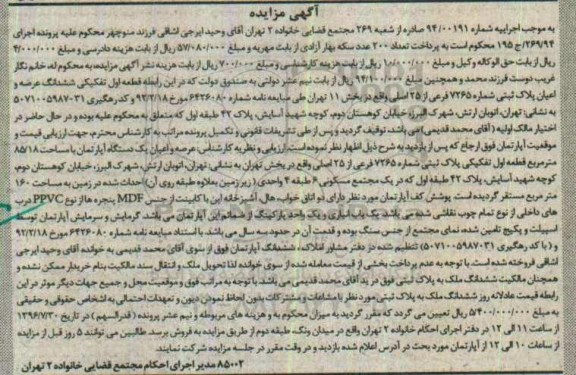 آگهی مزایده
به موجب اجراییه شماره ۹۴/۰۰۱۹۱ صادره از شعبه ۲۶۹ مجتمع قضایی خانواده ۲ تهران آقای وحید ایرجی اشاقی فرزند منوچهر محکوم علیه پرونده اجرای
۲۶۹/۹۴/ج ۱۹۵ محکوم است به پرداخت تعداد ۲۰۰ عدد سکه بهار آزادی از بابت مهریه و مبلغ ۵۷/۰۸۰/۰۰۰ ریال از بابت هزینه دادرسی و مبلغ ۴/۰۰۰/۰۰۰
ریال از بابت حق الوکاله وکیل و مبلغ ۱۸/۰۰۰/۰۰۰ ریال از بابت هزینه کارشناسی و مبلغ ۷۰۰/۰۰۰ ریال از بابت هزینه نشر آگهی مزایده به محکوم له، خانم نگار
غریب دوست فرزند محمد و همچنین مبلغ ۹۴/۱۰۰/۰۰۰ ریال از بابت نیم عشر دولتی به صندوق دولت که در این رابطه قطعه اول تفکیکی ششدانگ عرصه و
اعیان پلاک ثبتی شماره ۷۲۶۵ فرعی از ۲۵ اصلی واقع در بخش ۱۱ تهران طی مبایعه نامه شماره ۶۴۲۶۰۸۰ مورخ ۹۲/۲/۱۸ و کد رهگیری ۵۰۷۱۰۰۵۹۸۷۰۳۱
به نشانی: تهران، اتوبان ارتش، شهرک البرز، خیابان کوهستان دوم، کوچه شهید آسایش، پلاک ۴۲ طبقه اول که متعلق به محکوم علیه بوده و در حال حاضر در
اختیار مالک اولیه (آقای محمد قدیمی) می باشد، توقیف گردید و پس از طی تشریفات قانونی و تکمیل پرونده مراتب به کارشناس محترم، جهت ارزیابی قیمت و
موقعیت آپارتمان فوق ارجاع که پس از بازدید به شرح ذیل اظهار نظر نموده است. ارزیابی و نظریه کارشناس: عرصه و اعیان یک دستگاه آپارتمان با مساحت ۸۵/۱۸
مترمربع قطعه اول تفکیکی پلاک ثبتی شماره ۷۲۶۵ فرعی از ۲۵ اصلی واقع در بخش تهران به نشانی: تهران، اتوبان ارتش، شهرک البرز، خیابان کوهستان دوم،
کوچه شهید آسایش، پلاک ۴۲ طبقه اول که در یک مجتمع مسکونی ۶ طبقه ۴ واحدی (زیرزمین بعلاوه طبقه روی آن) احداث شده در زمین به مساحت ۱۶۰
متر مربع مستقر گردیده است. پوشش کف آپارتمان مورد نظر دارای دو اتاق خواب، هال، آشپزخانه اپن با کابینت از جنس MDF پنجره ها از نوع PPVC درب
های داخلی از نوع تمام چوب نقاشی شده می باشد. یک باب انباری و یک واحد پارکینگ از ضمائم این آپارتمان می باشد. گرمایش و سرمایش آپارتمان توسط
اسپیلت و پکیج تامین شده، نمای مجتمع از جنس سنگ بوده و قدمت آن در حدود سه سال می باشد. با استناد مبایعه نامه شماره ۶۴۲۶۰۸۰ مورخ ۹۲/۲/۱۸
و (با کد رهگیری ۵۰۷۱۰۰۵۹۸۷۰۳۱) تنظیم شده در دفتر مشاور املاک، ششدانگ آپارتمان فوق از سوی آقای محمد قدیمی به خوانده آقای وحید ایرجی
اشاقی فروخته شده است. با توجه به عدم پرداخت بخشی از قیمت معامله شده از سوی خوانده لذا تحویل ملک و انتقال سند مالکیت بنام خریدار ممکن نشده و
همچنان مالکیت ششدانگ ملک به پلاک ثبتی فوق در ید آقای محمد قدیمی می باشد. با توجه به مراتب فوق و موقعیت محل و جمیع جهات دیگر موثر در این
رابطه قیمت عادلانه روز ششدانگ ملک به پلاک ثبتی مورد نظر با مشاعات و مشترکات بدون لحاظ نمودن دیون و تعهدات احتمالی به اشخاص حقوقی و حقیقی
به مبلغ ۵/۴۰۰/۰۰۰/۰۰۰ ریال تعیین می گردد که مقرر گردید به میزان محکوم به و هزینه های مربوطه و نیم عشر پرونده (قدرالسهم) در تاریخ ۱۳۹۶/۷/۳۰
از ساعت ۱۱ الی ۱۲ در دفتر اجرای احکام خانواده ۲ تهران واقع در میدان ونک، طبقه دوم از طریق مزایده به فروش برسد. طالبین می توانند ۵ روز قبل از مزایده
از ساعات ۱۰ الی ۱۲ از آپارتمان مورد بحث در آدرس اعلام شده بازدید و در وقت مقرر در جلسه مزایده شرکت نمایند.
۸۵۰۰۲ مدیر اجرای احکام مجتمع قضایی خانواده ۲ تهران